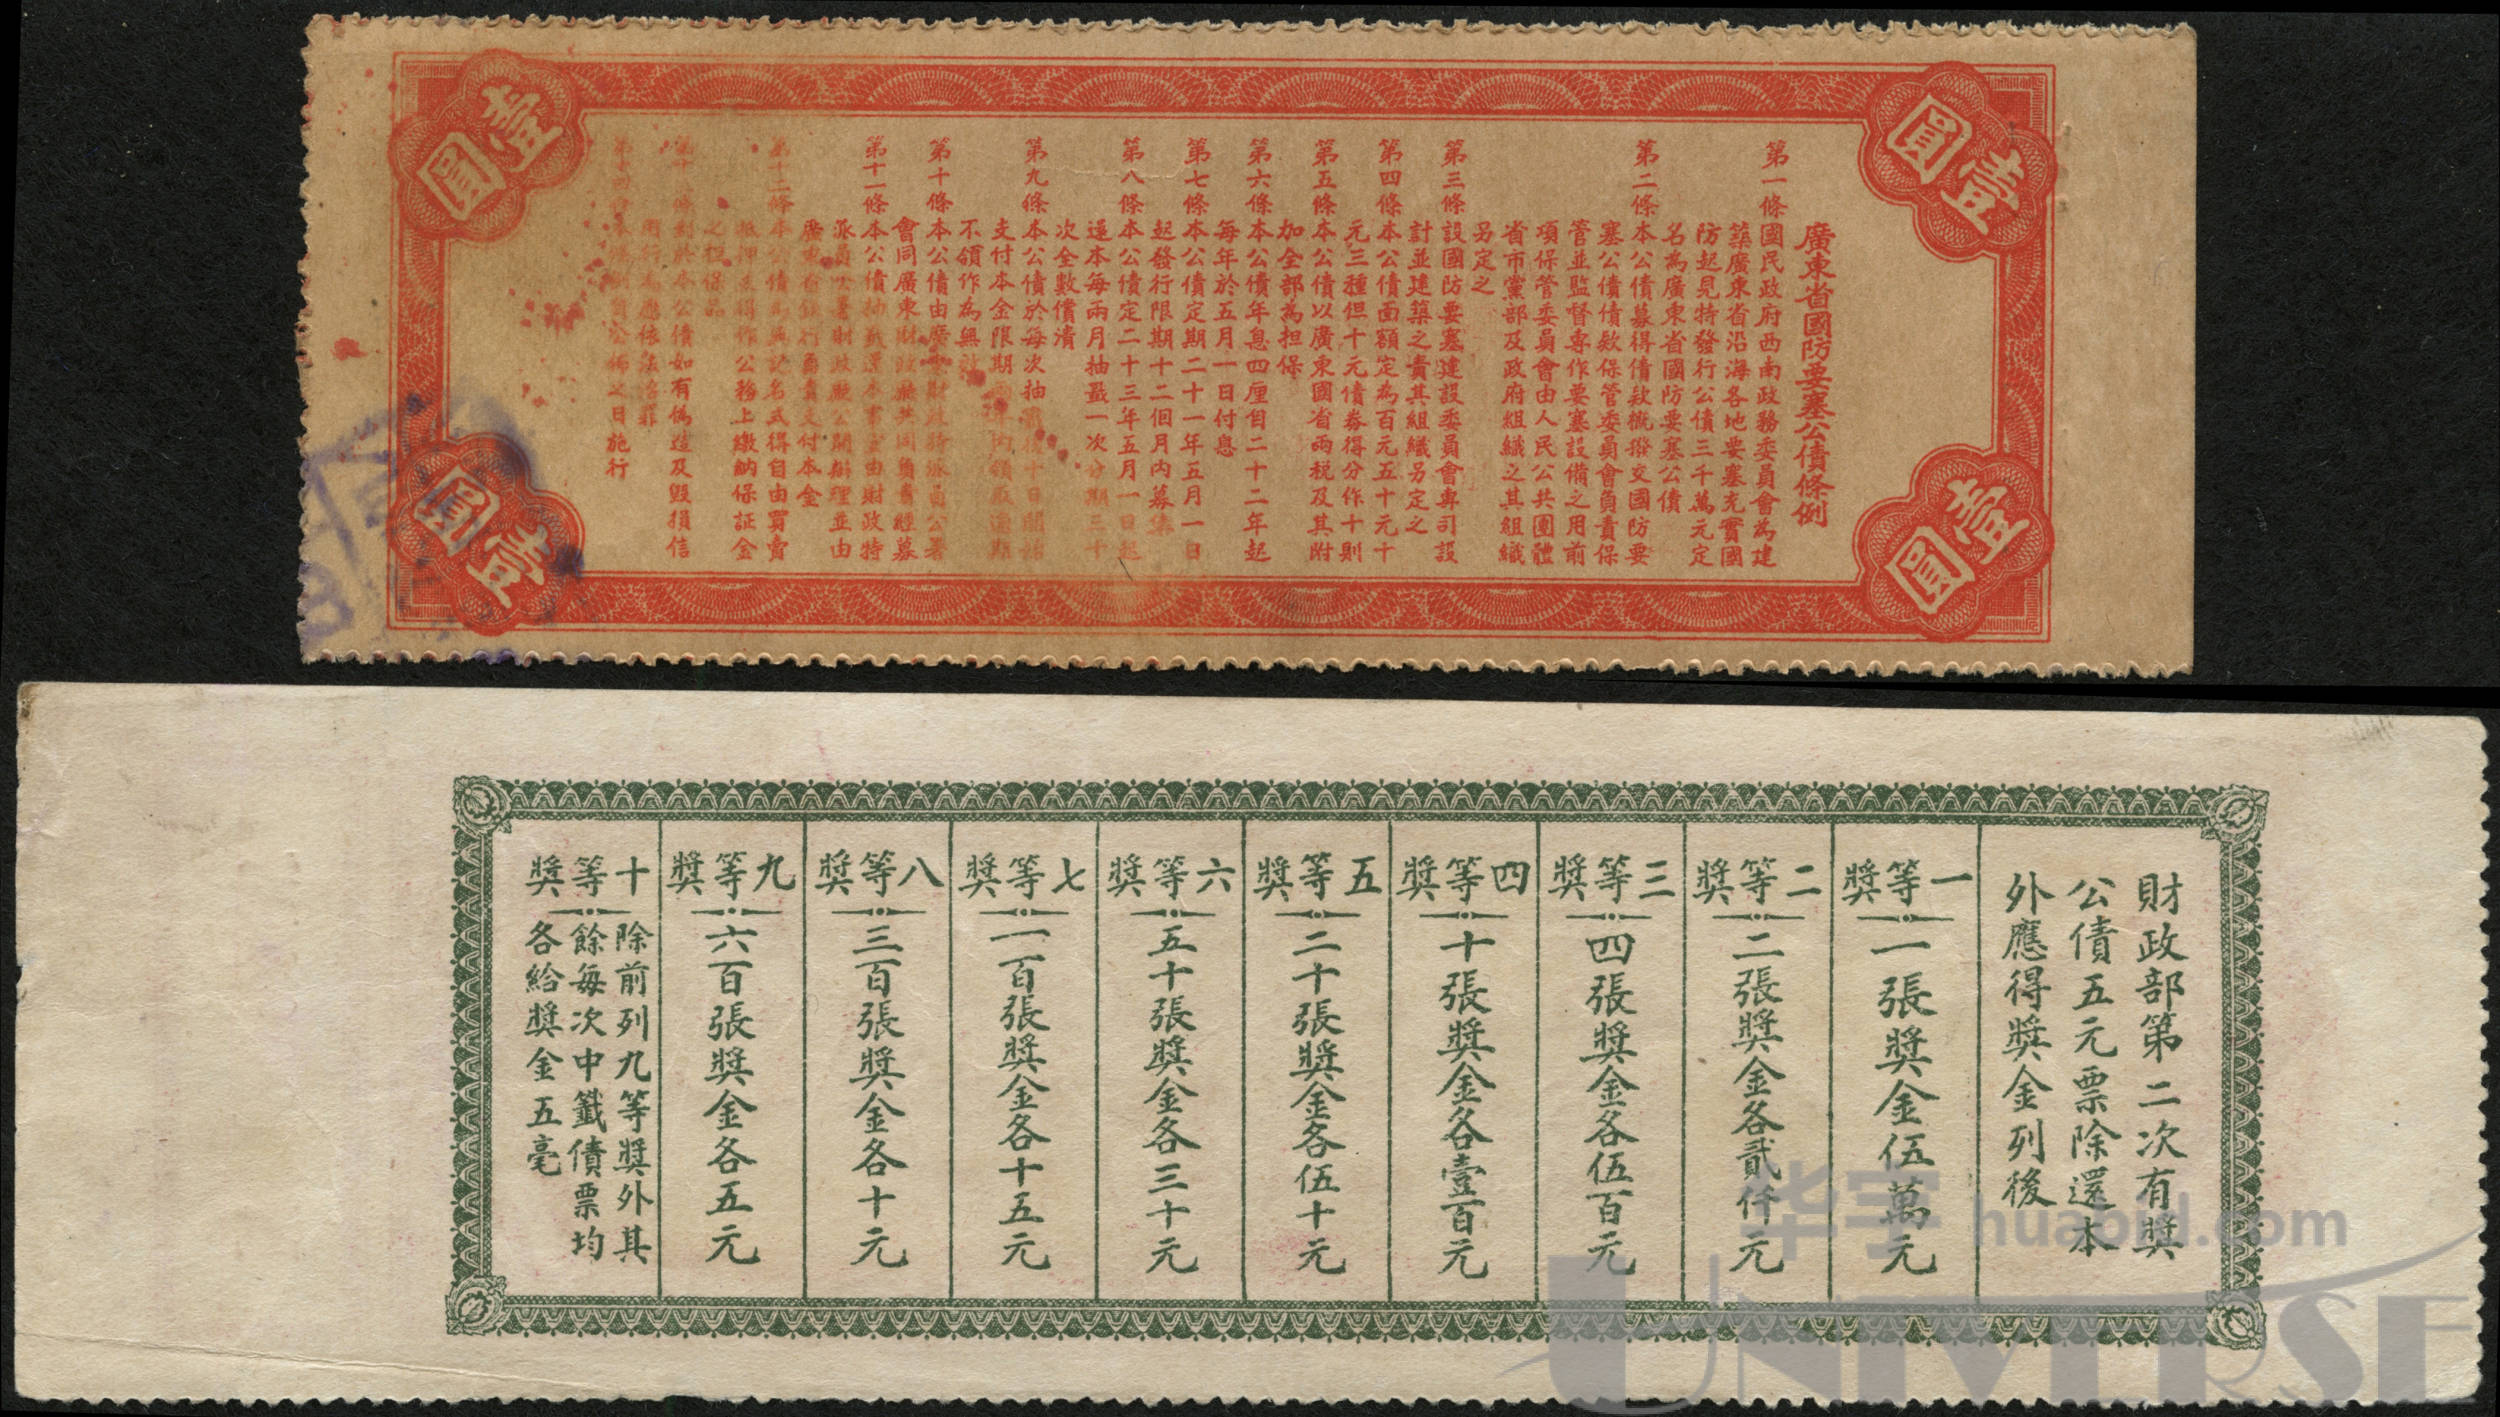 廣東省國防要塞公債條例
第一條國民政府西南政務委員會為建
築廣東省沿海各地要塞充實國
防起見特發行公債三千萬元定
名為廣東省國防要塞公債
第二條本公債募得債款概撥交國防要
塞公債債款保管委員會負責保
管並監督專作要塞設備之用前
項保管委員會由人民公共團體
省市黨部及政府組織之其組織
另定之
第三條設國防要塞建設委員會專司設
計並建築之責其組織另定之
第四條本公債面額定為百元五十元十
元三種但十元債券得分作十則
第五條本公債以廣東國省兩稅及其附
加全部為担保
第六條本公債年息四厘自二十二年起
每年於五月一日付息
第七條本公債定期二十一年五月一日
起發行限期十二個月內募集
第八條本公債定二十三年五月一日起
還本每兩月抽籤一次分期三十
次全數償清
第九條本公債於每次抽籤後十日開始
支付本金限期兩年內領取逾期
不領作為無效
第十條本公債由廣東財政特派員公署
會同廣東財政廳共同負責經募
第十一條本公債抽籤還本事宜由財政特
派員公署財政廳公開辦理並由
廣東省銀行負責支付本金
第十二條本公債為無記名式得自由買賣
抵押並得作公務上繳納保証金
之担保品
對於本公債如有偽造及毀損信
用行為應依法治罪
本條例自公佈之日施行
壹圓
壹圓
壹圓
壹圓
財政部第二次有獎
公債五元票除還本
外應得獎金列後
一等獎
一張獎金伍萬元
二等獎
二張獎金各貳仟元
三等獎
四張獎金各伍百元
四等獎
十張獎金各壹百元
五等獎
二十張獎金各伍十元
六等獎
五十張獎金各三十元
七等獎
一百張獎金各十五元
八等獎
三百張獎金各十元
九等獎
六百張獎金各五元
十等獎
除前列九等獎外其
餘每次中籤債票均
各給獎金五毫
华宇 huabid.com
UNIVERSE